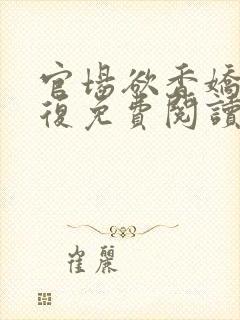 官場欲香嬌
復免費閱讀
崔麗